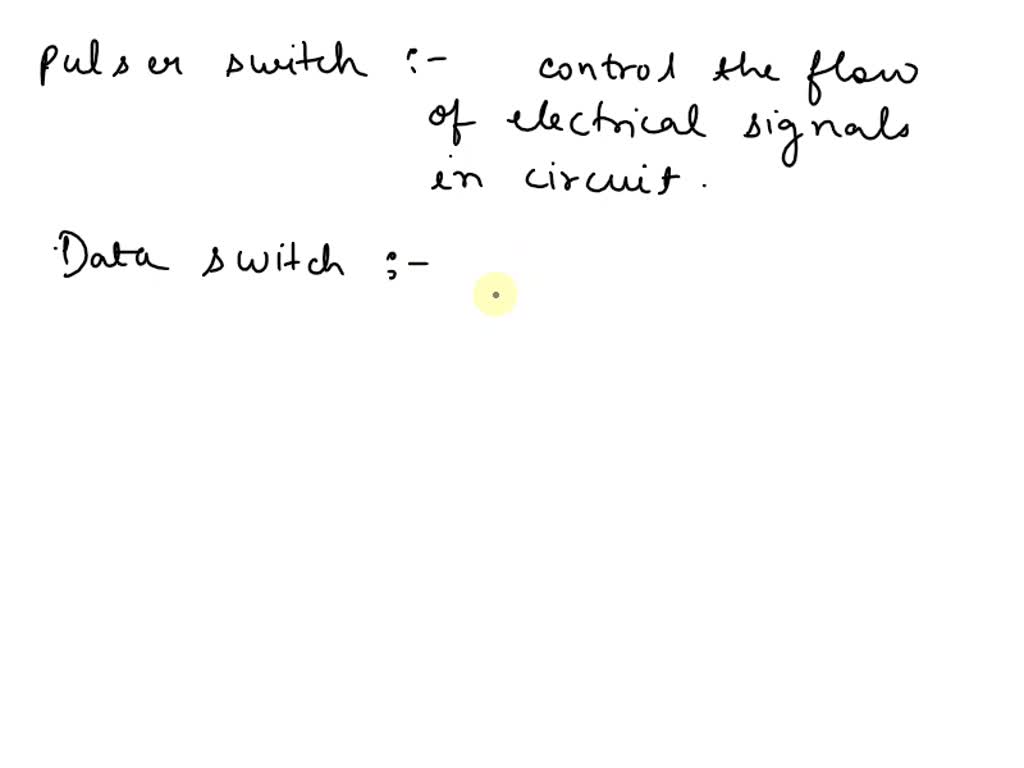 Pulser switch :- control the flow
of electrical signals
in circuit.
Data switch :-